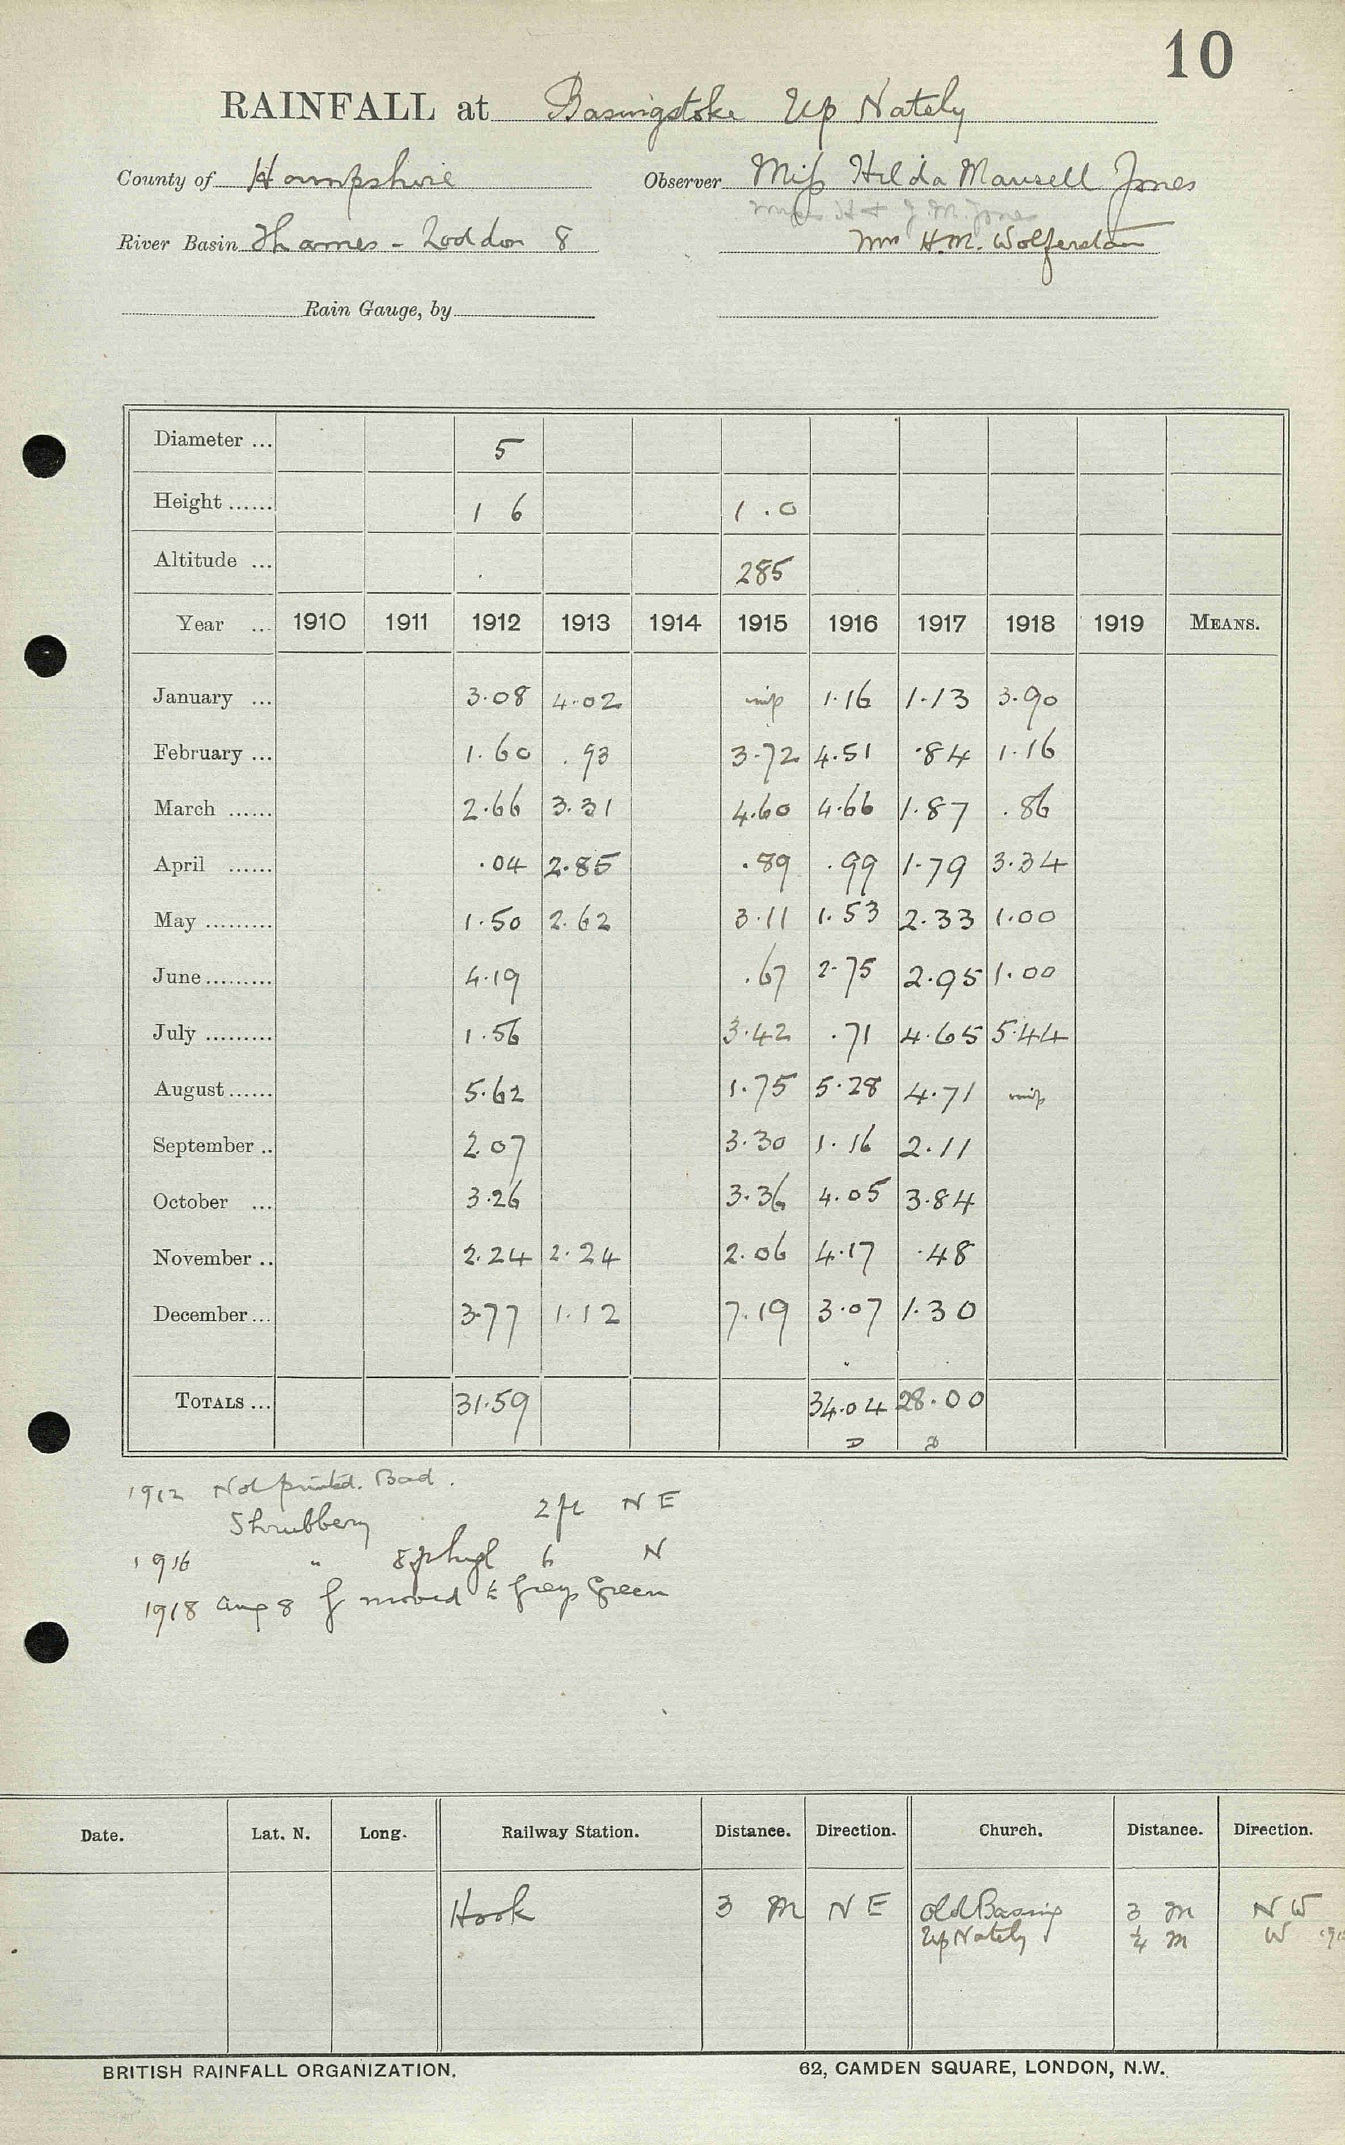 10
RAINFALL at Basingstoke Up Nately
County of Hampshire Observer Miss Hilda Mansell Jones
Misses H & J. M. Jones
River Basin Thames - Loddon 8 Mrs H.M. Wolferstan
Rain Gauge, by
Diameter ... 5
Height ...... 1 6 1.0
Altitude ... 285
Year ... 1910 1911 1912 1913 1914 1915 1916 1917 1918 1919 MEANS.
January ... 3.08 4.02 miss 1.16 1.13 3.90
February ... 1.60 .93 3.72 4.51 .84 1.16
March ...... 2.66 3.31 4.60 4.66 1.87 .86
April ...... .04 2.85 .89 .99 1.79 3.34
May ......... 1.50 2.62 3.11 1.53 2.33 1.00
June ......... 4.19 .67 2.75 2.95 1.00
July ......... 1.56 3.42 .71 4.65 5.44
August ...... 5.62 1.75 5.28 4.71 miss
September .. 2.07 3.30 1.16 2.11
October ... 3.26 3.36 4.05 3.84
November .. 2.24 2.24 2.06 4.17 .48
December ... 3.77 1.12 7.19 3.07 1.30
TOTALS ... 31.59 34.04 28.00
D D
1912 Not printed. Bad.
Shrubbery 2 ft N E
1916 " 8 ft high 6 N
1918 Aug 8 g moved to Greys Green
Date. Lat. N. Long. Railway Station. Distance. Direction. Church. Distance. Direction.
Hook 3 M N E Old Basing 3 m N W
Up Nately 1/4 m W
BRITISH RAINFALL ORGANIZATION. 62, CAMDEN SQUARE, LONDON, N.W.